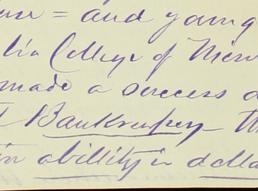 = and young
College of
made a success
Bankruptcy
ability in dolla